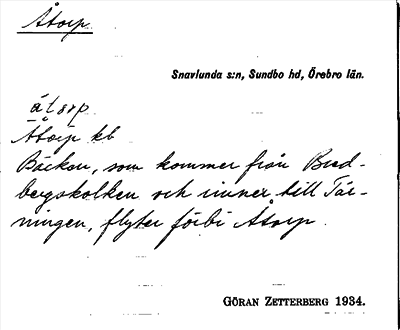 Åtorp.
Snavlunda s:n, Sundbo hd, Örebro län.
åtorp
Åtorp kb
Bäcken, som kommer från Bred-
bergskolken och rinner till Tär-
ningen, flyter förbi Åtorp.
GÖRAN ZETTERBERG 1934.